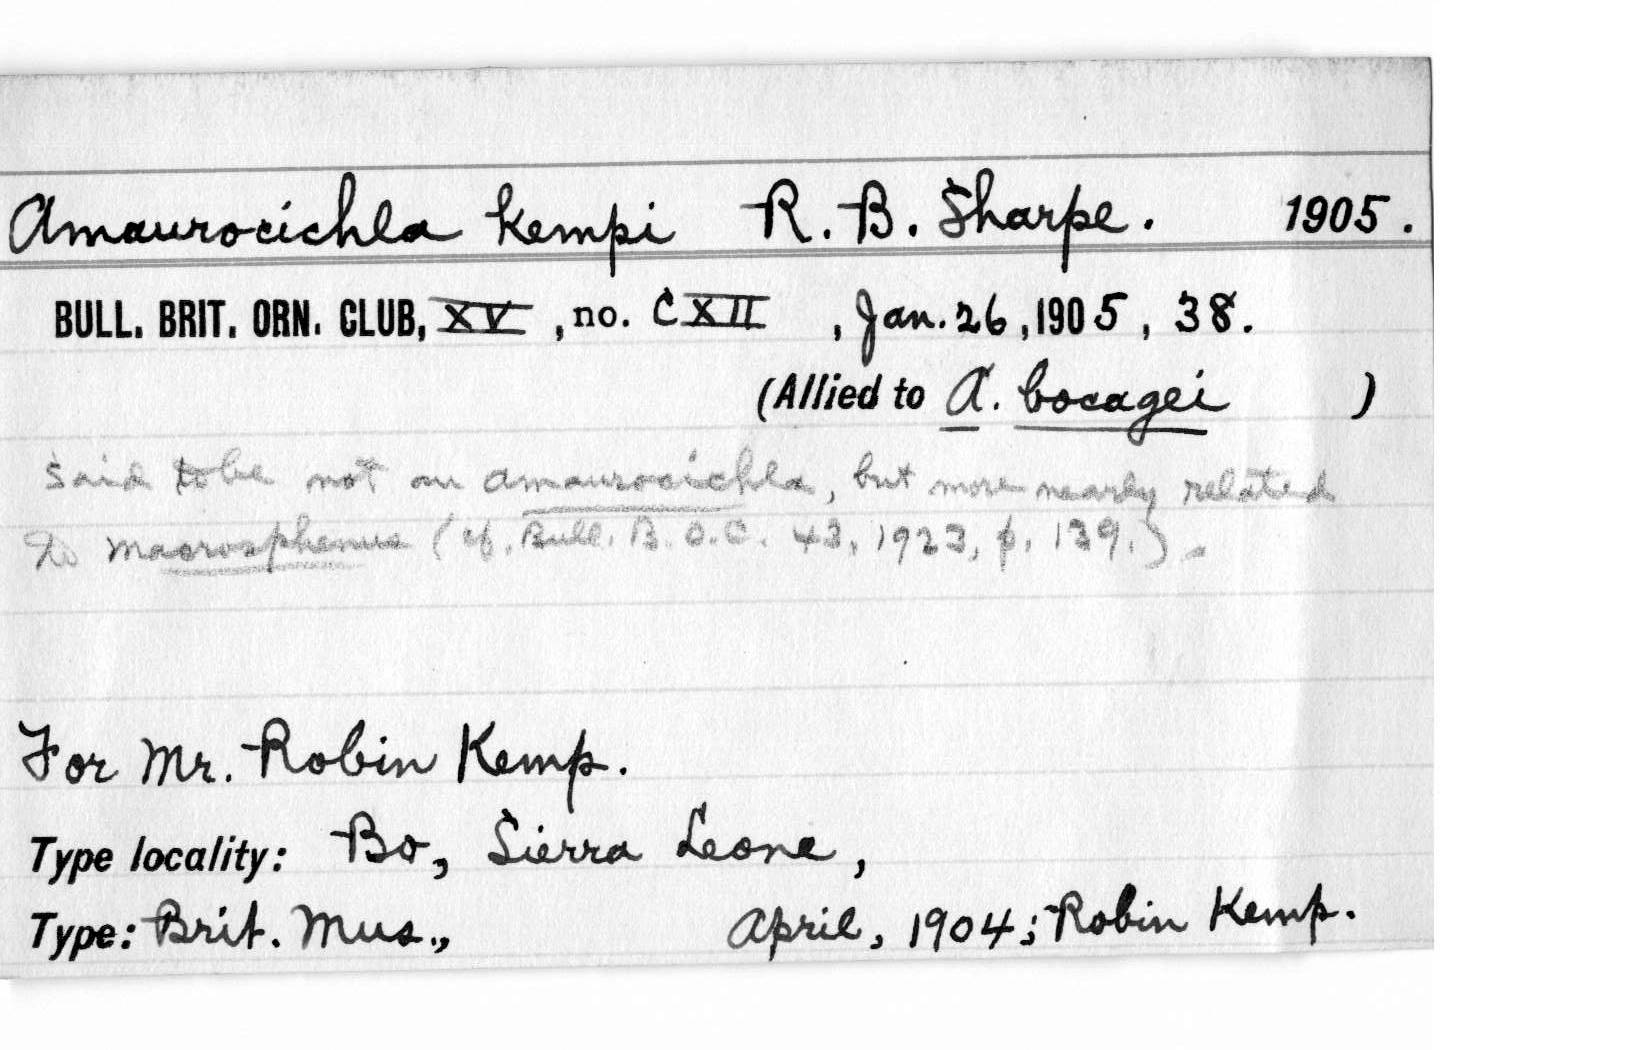 Amaurocichla kempi R. B. Sharpe. 1905.
BULL. BRIT. ORN. CLUB, XV, no. CXII, Jan. 26, 1905, 38.
(Allied to A. bocagei )
Said to be not an Amaurocichla, but more nearly related
to Macrosphenus (cf. Bull. B.O.C. 43, 1923, p. 139.).
For Mr. Robin Kemp.
Type locality: Bo, Sierra Leone,
Type: Brit. Mus., April, 1904; Robin Kemp.